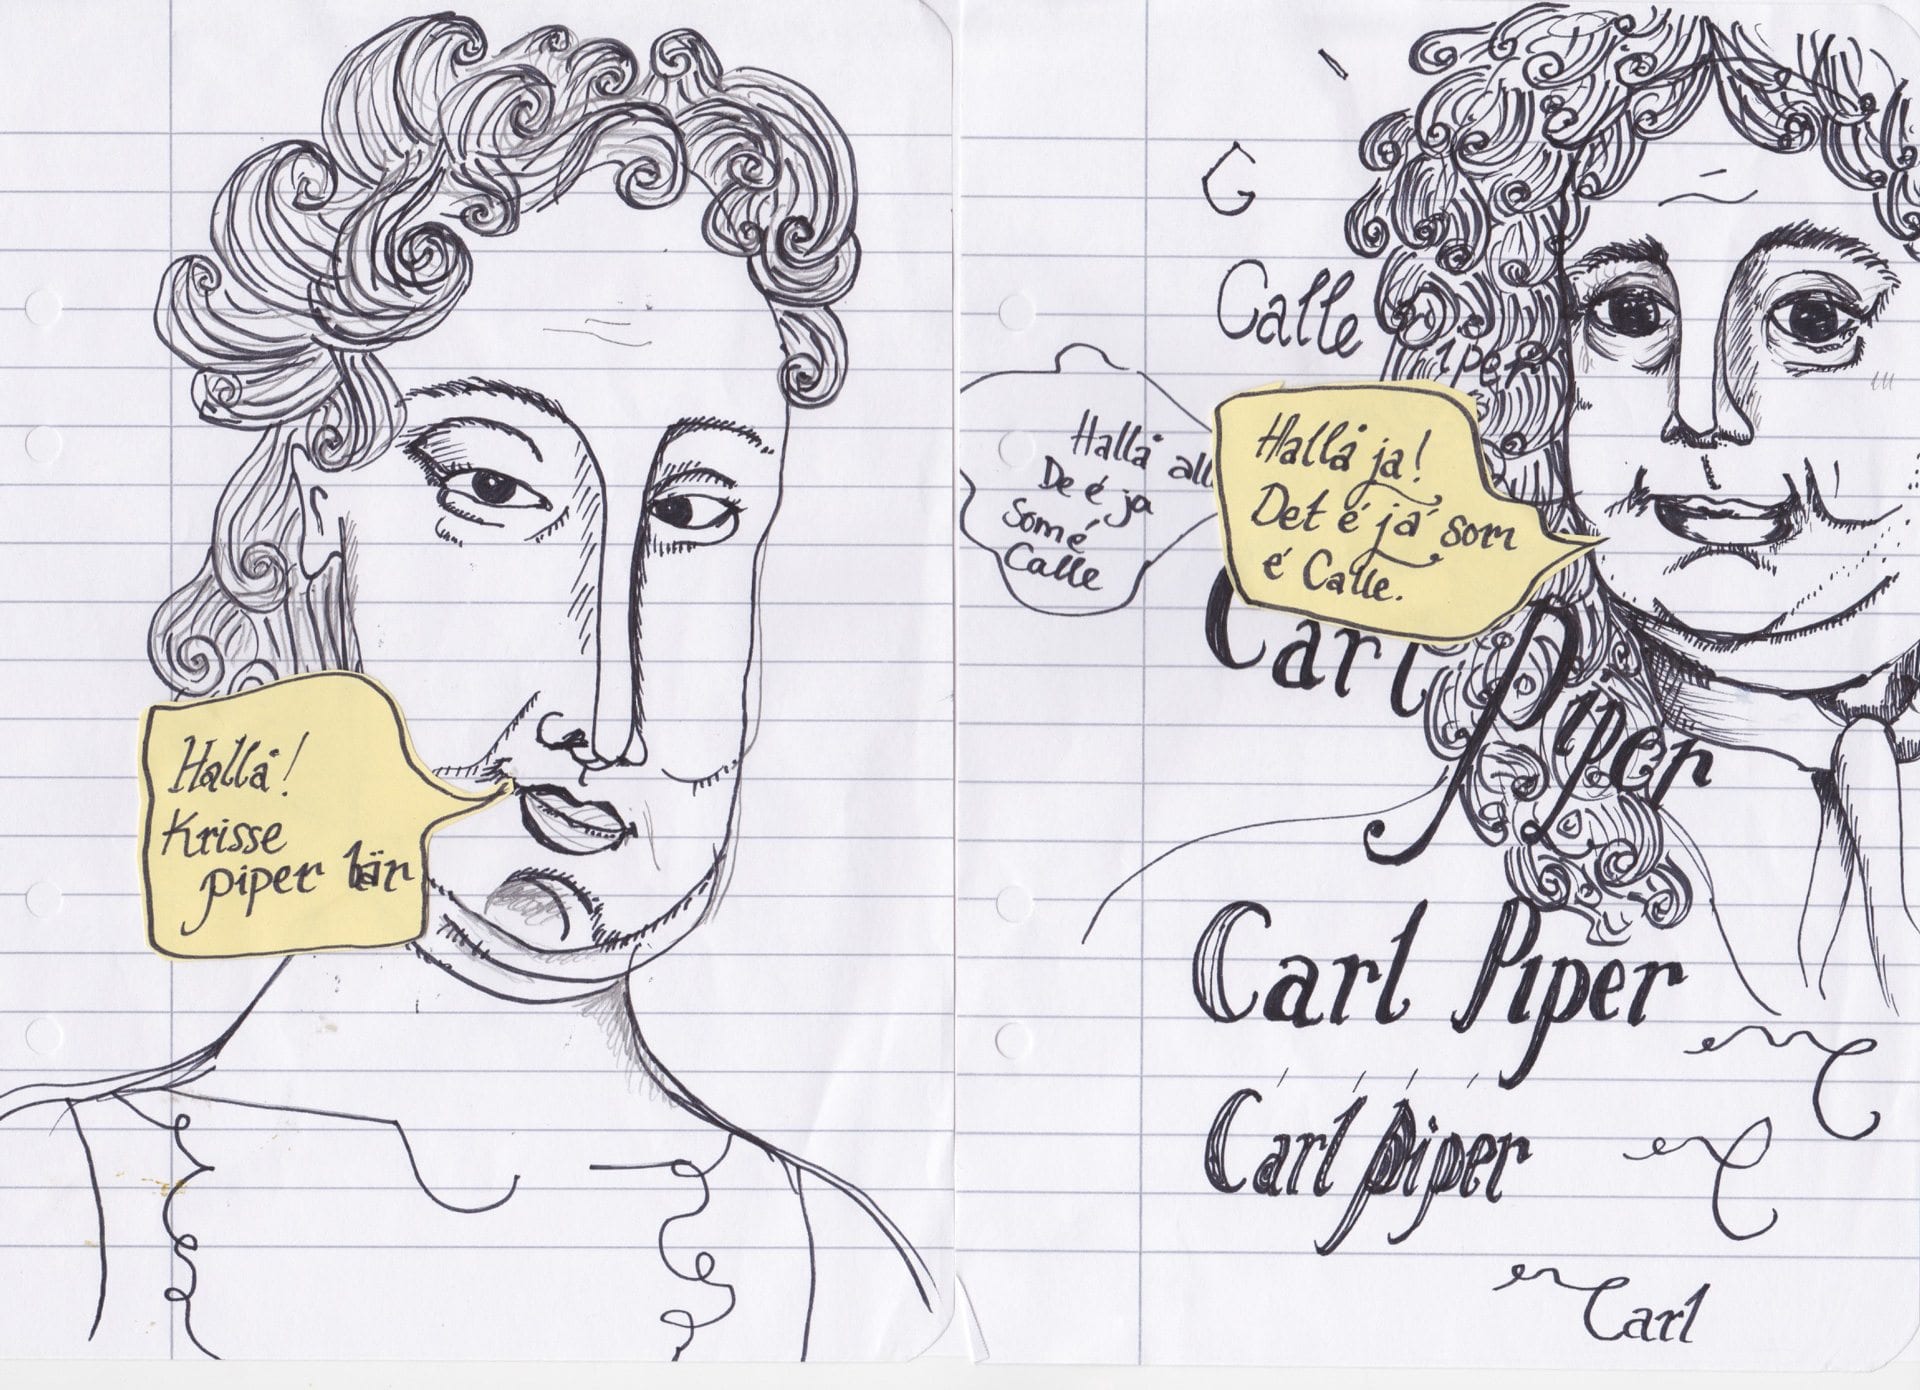 Hallå!
Krisse
piper här
G
Calle
iper
Hallå all
De é ja
som é
Calle
Hallå ja!
Det é ja som
é Calle.
Carl Piper
Carl Piper
C
Carl piper
C
Carl